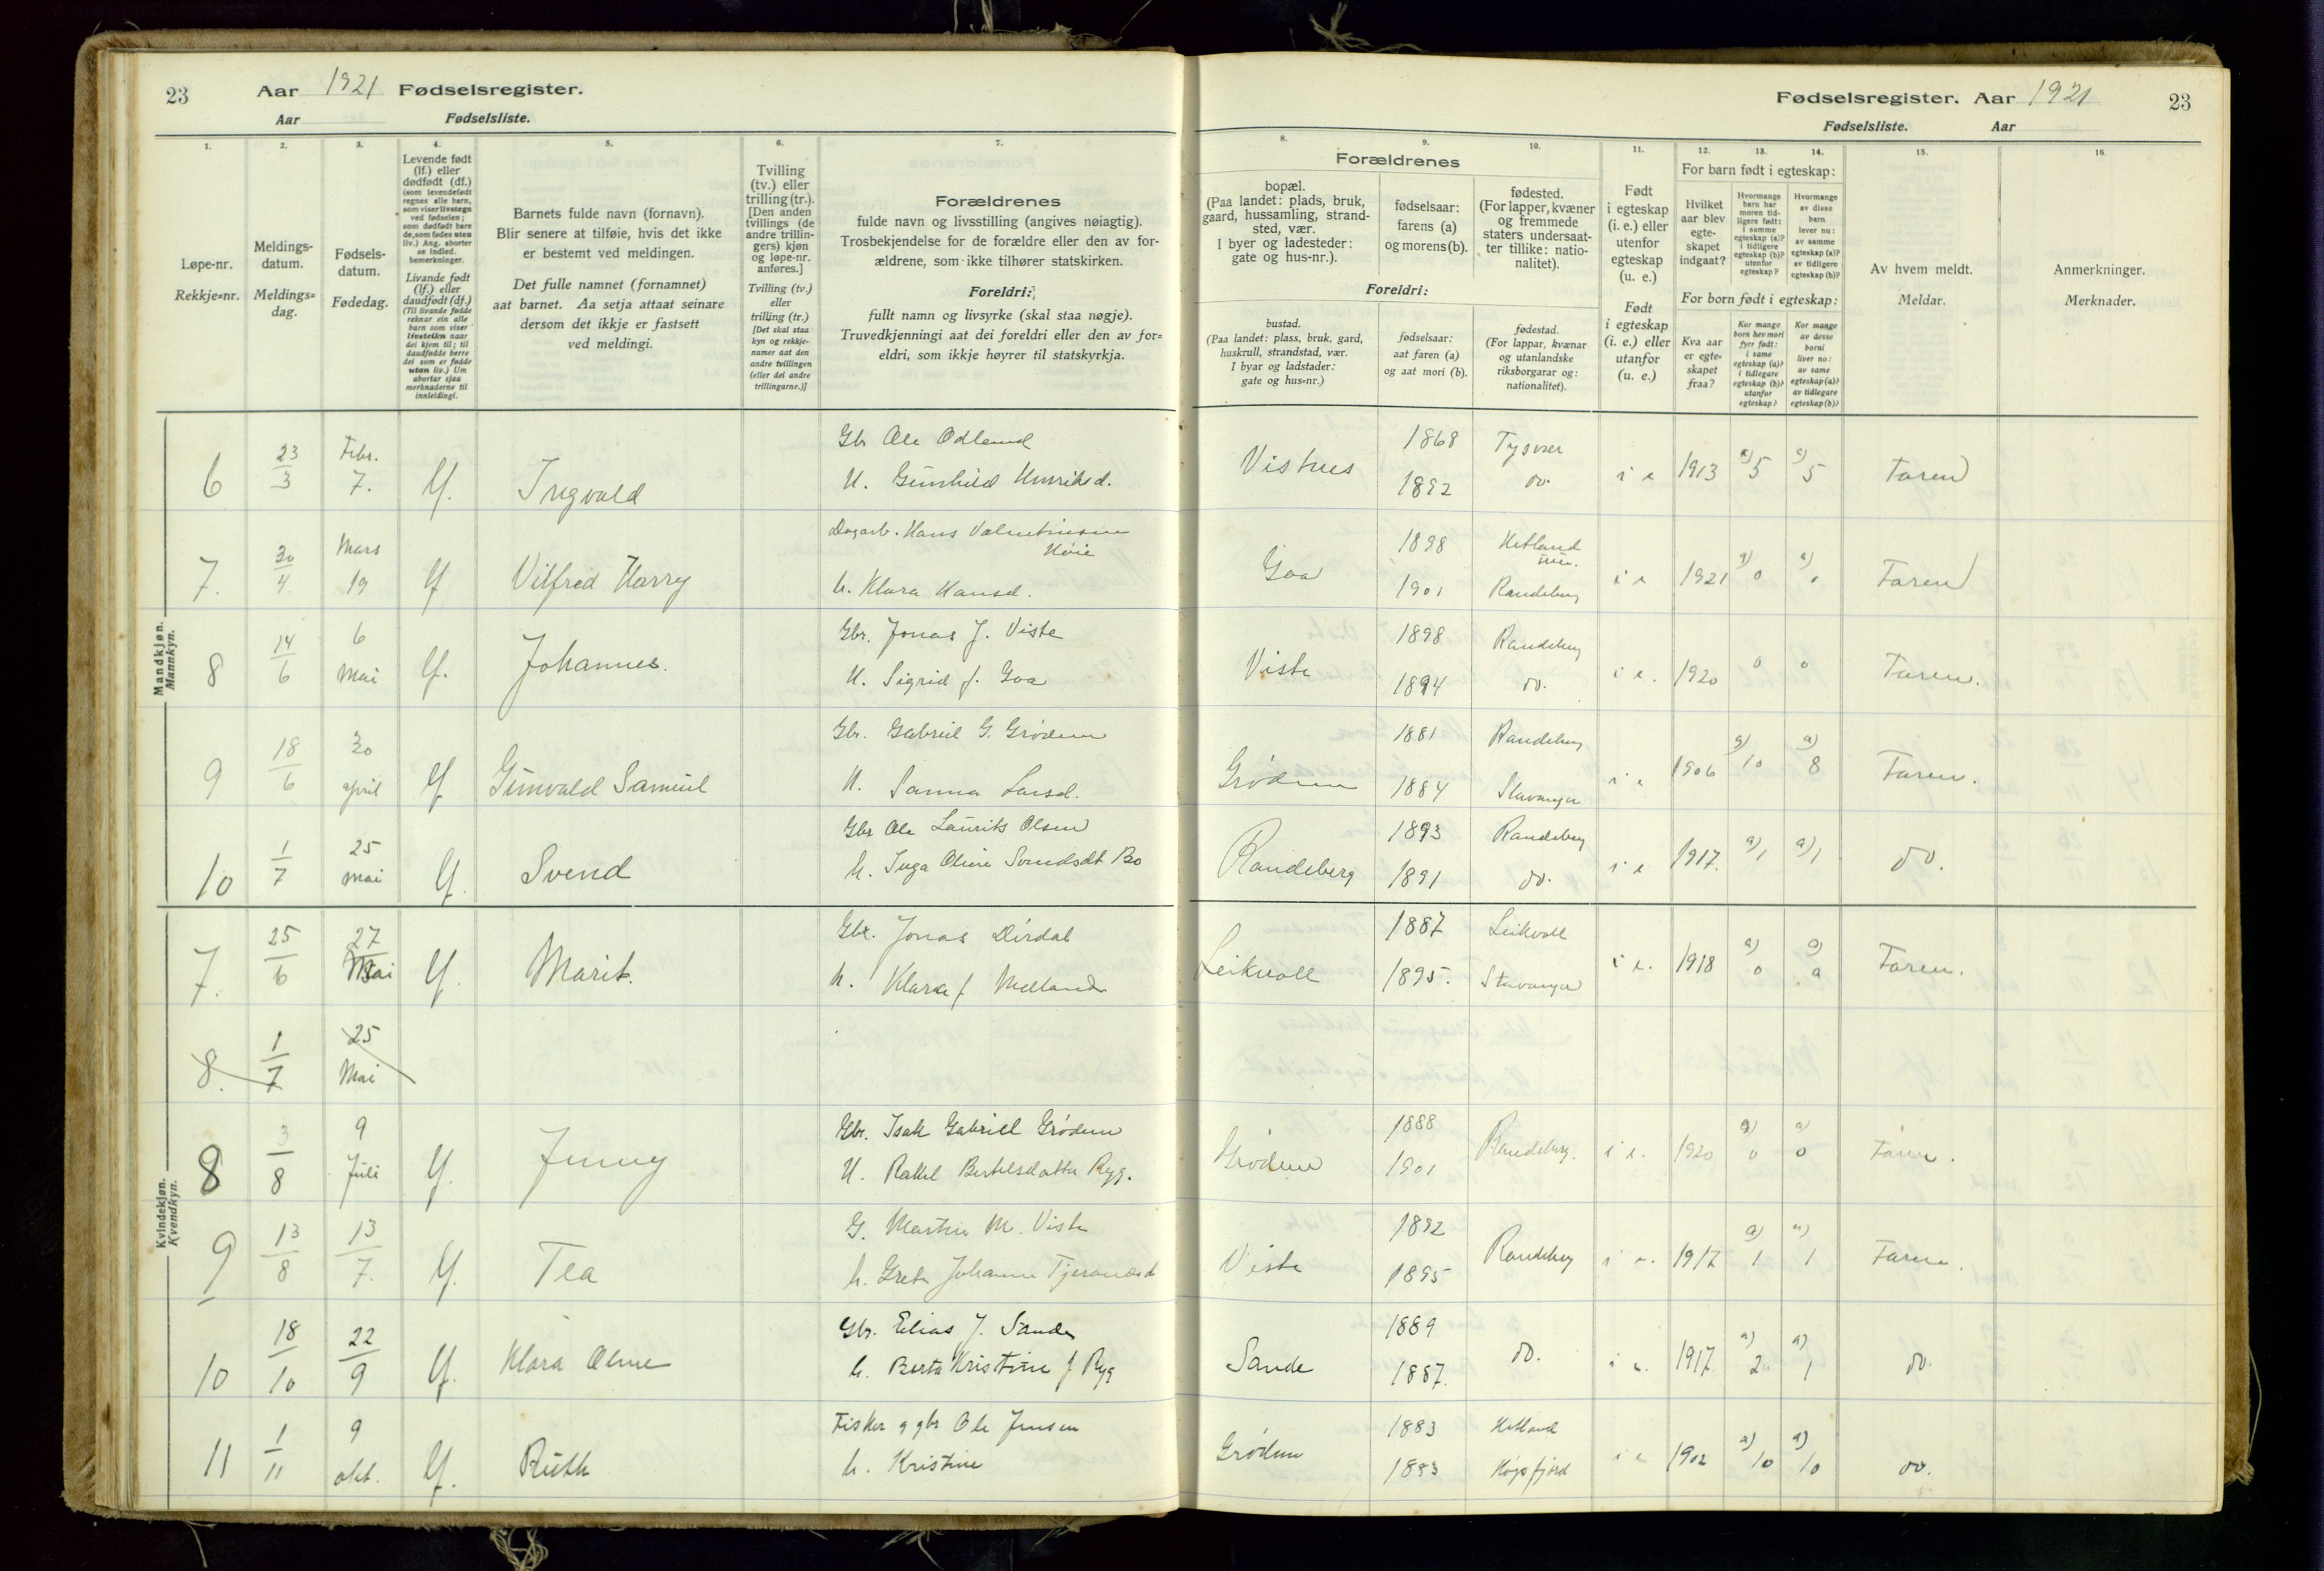 23
Aar 1921 Fødselsregister.
Aar Fødselsliste.
1.
Løpe-nr.
Rekkje=nr.
2.
Meldings-
datum.
Meldings=
dag.
3.
Fødsels-
datum.
Fødedag.
4.
Levende født
(lf.) eller
dødfødt (df.)
(som levendefødt
regnes alle barn,
som viser livstegn
ved fødselen;
som dødfødt bare
de, som fødes uten
liv.) Ang. aborter
se indled.
bemerkninger.
Livande født
(lf.) eller
daudfødt (df.)
(Til livande fødde
reknar ein alle
barn som viser
livsteikn naar
dei kjem til; til
daudfødde berre
dei som er fødde
utan liv.) Um
abortar sjaa
merknaderne til
innleidingi.
5.
Barnets fulde navn (fornavn).
Blir senere at tilføie, hvis det ikke
er bestemt ved meldingen.
Det fulle namnet (fornamnet)
aat barnet. Aa setja attaat seinare
dersom det ikkje er fastsett
ved meldingi.
6.
Tvilling
(tv.) eller
trilling (tr.).
[Den anden
tvillings (de
andre trillin-
gers) kjøn
og løpe-nr.
anføres.]
Tvilling (tv.)
eller
trilling (tr.)
[Det skal staa
kyn og rekkje-
numer aat den
andre tvillingen
(eller dei andre
trillingarne.)]
7.
Forældrenes
fulde navn og livsstilling (angives nøiagtig).
Trosbekjendelse for de forældre eller den av for-
ældrene, som ikke tilhører statskirken.
Foreldri:
fullt namn og livsyrke (skal staa nøgje).
Truvedkjenningi aat dei foreldri eller den av for=
eldri, som ikkje høyrer til statskyrkja.
Fødselsregister. Aar 1921
23
Fødselsliste. Aar
Forældrenes
8.
bopæl.
(Paa landet: plads, bruk,
gaard, hussamling, strand-
sted, vær.
I byer og ladesteder:
gate og hus-nr.).
9.
fødselsaar:
farens (a)
og morens (b).
10.
fødested.
(For lapper, kvæner
og fremmede
staters undersaat-
ter tillike: natio-
nalitet).
Foreldri:
bustad.
(Paa landet: plass, bruk, gard,
huskrull, strandstad, vær.
I byar og ladstader:
gate og hus=nr.)
fødselsaar:
aat faren (a)
og aat mori (b).
fødestad.
(For lappar, kvænar
og utanlandske
riksborgarar og:
nationalitet).
11.
Født
i egteskap
(i. e.) eller
utenfor
egteskap
(u. e.)
Født
i egteskap
(i. e.) eller
utanfor
(u. e.)
For barn født i egteskap:
12.
Hvilket
aar blev
egte-
skapet
indgaat?
13.
Hvormange
barn har
moren tid-
ligere født:
i samme
egteskap (a)?
i tidligere
egteskap (b)?
utenfor
egteskap?
14.
Hvormange
av disse
barn
lever nu:
av samme
egteskap (a)?
av tidligere
egteskap (b)?
For born født i egteskap:
Kva aar
er egte-
skapet
fraa?
Kor mange
born hev mori
fyrr født:
i same
egteskap (a)?
i tidlegare
egteskap (b)?
utanfor
egteskap?
Kor mange
av desse
borni
liver no:
av same
egteskap (a)?
av tidlegare
egteskap (b)?
15.
Av hvem meldt.
Meldar.
16.
Anmerkninger.
Merknader.
Mandkjøn.
Mannkyn.
6 23/3 Febr. 7. lf. Ingvald Gbr Ole Odland Vistnes 1868 Tysvær i e 1913 a) 5 a) 5 Faren
H. Gunhild Henriksd. 1892 do.
7. 30/4 Mars 19 lf Vilfred Harry Dagarb. Hans Valentinsen Høie Goa 1898 Hetland i e 1921 a) 0 a) 0 Faren
h. Klara Hansd. 1901 Randeberg
8 14/6 6 Mai lf. Johannes. Gbr. Jonas J. Viste Viste 1898 Randeberg i e. 1920 0 0 Faren.
H. Sigrid f. Goa 1894 do.
9 18/6 30 april lf Gunvald Samuel Gbr. Gabriel G. Grødem Grødem 1881 Randeberg i e 1906 a) 10 a) 8 Faren.
H. Sanna Larsd. 1884 Stavanger
10 1/7 25 mai lf. Svend Gbr Ole Laurits Olsen Randeberg 1893 Randeberg i e 1917. a) 1 a) 1 do.
h. Inga Oline Svendsdt Bø 1891 do.
Kvindekjøn.
Kvendkyn.
7. 25/6 27 Mai lf. Marit. Gbr. Jonas Dirdal Leikvoll 1887 Leikvoll i e. 1918 a) 0 a) 0 Faren.
h. Klara f Melland 1895. Stavanger
8. 1/7 25 Mai
8 3/8 9 Juli lf. Jenny Gbr. Isak Gabriel Grødem Grødem 1888 Randeberg. i e. 1920 a) 0 a) 0 Faren.
H. Rakel Bertelsdatter Ryg. 1901
9 13/8 13/7. lf. Tea G. Martin M. Viste Viste 1892 Randeberg i e. 1917 a) 1 a) 1 Faren.
h. Grete Johanne Tjerandsd 1895
10 18/10 22/9 lf. Klara Oline Gbr. Elias J. Sande Sande 1889 do. i e. 1917. a) 2 a) 1 do.
h. Berta Kristine f Ryg 1887.
11 1/11 9 okt. lf. Ruth Fisker og gbr Ole Jensen Grødem 1883 Hetland i e 1902 a) 10 a) 10 do.
h. Kristine 1883 Høgsfjord